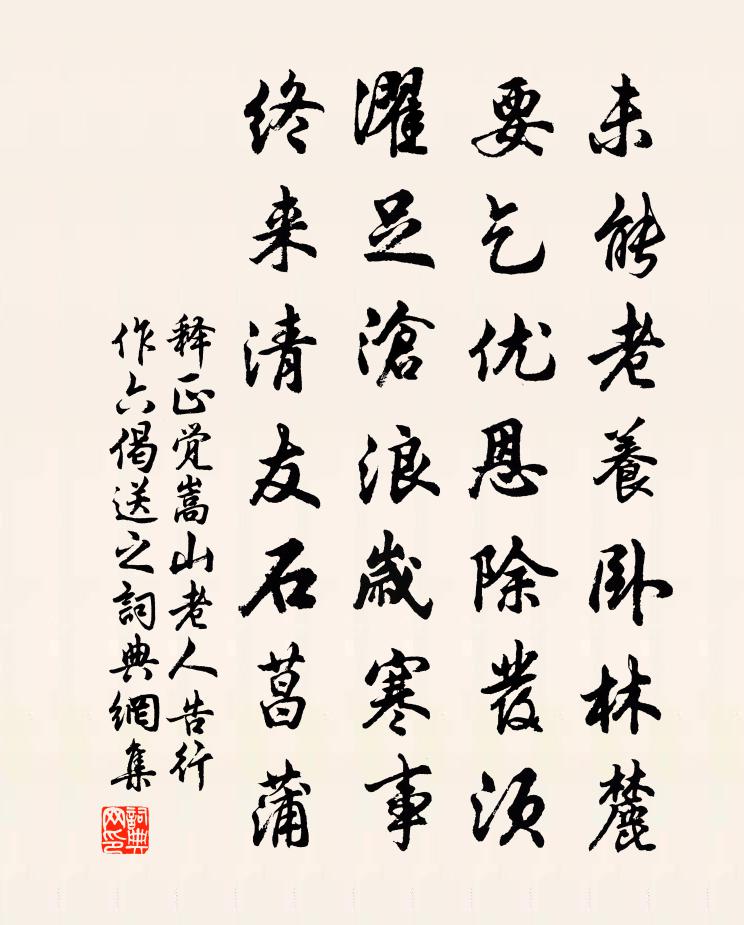 未能老養卧林麓
要乞优恩除發须
濯足滄浪歲寒事
终来清友石菖蒲
释正觉嵩山老人告行
作六偈送之詞典網集
詞典网印